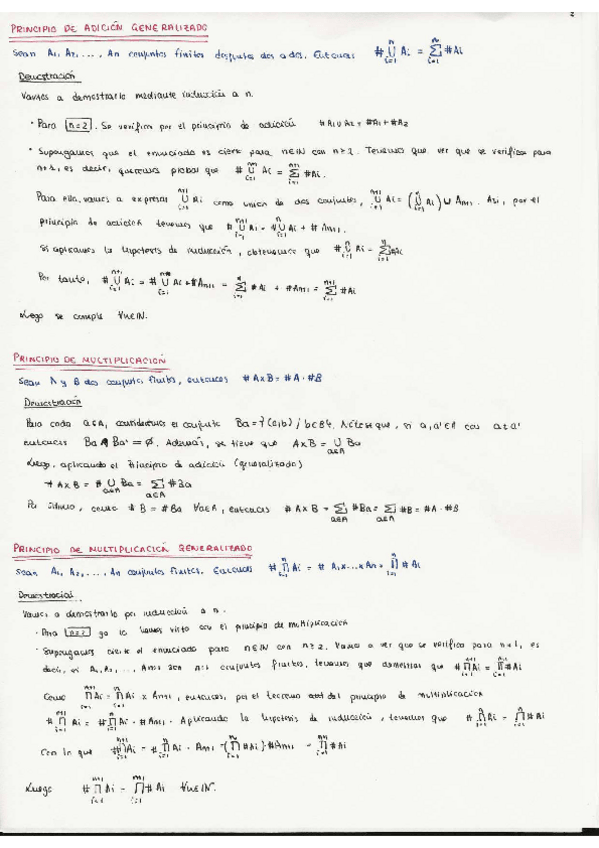 2
PRINCIPIO DE ADICIÓN GENERALIZADO
Sean A₁, A₂, ..., An conjuntos finitos disjuntos dos a dos. Entonces # ⋃ᵢ₌₁ⁿ Ai = ∑ᵢ₌₁ⁿ #Ai
Demostración
Vamos a demostrarlo mediante inducción a n.
· Para n=2. Se verifica por el principio de adición #A₁∪A₂ = #A₁+#A₂
· Supongamos que el enunciado es cierto para n∈ℕ con n≥2. Tenemos que ver que se verifica para
n+1, es decir, queremos probar que # ⋃ᵢ₌₁ⁿ⁺¹ Ai = ∑ᵢ₌₁ⁿ⁺¹ #Ai.
Para ello, vamos a expresar ⋃ᵢ₌₁ⁿ⁺¹ Ai como unión de dos conjuntos, ⋃ᵢ₌₁ⁿ⁺¹ Ai = (⋃ᵢ₌₁ⁿ Ai) ∪ An+1. Así, por el
principio de adición tenemos que # ⋃ᵢ₌₁ⁿ⁺¹ Ai = # ⋃ᵢ₌₁ⁿ Ai + # An+1.
Si aplicamos la hipótesis de inducción, obtenemos que # ⋃ᵢ₌₁ⁿ Ai = ∑ᵢ₌₁ⁿ #Ai
Por tanto, # ⋃ᵢ₌₁ⁿ⁺¹ Ai = # ⋃ᵢ₌₁ⁿ Ai + #An+1 = ∑ᵢ₌₁ⁿ #Ai + #An+1 = ∑ᵢ₌₁ⁿ⁺¹ #Ai
Luego se cumple ∀n∈ℕ.
PRINCIPIO DE MULTIPLICACIÓN
Sean A y B dos conjuntos finitos, entonces #A×B = #A·#B
Demostración
Para cada a∈A, consideremos el conjunto Ba={(a,b)/b∈B}. Nótese que, si a,a'∈A con a≠a'
entonces Ba ∩ Ba' = ∅. Además, se tiene que A×B = ⋃ₐ∈A Ba
Luego, aplicando el Principio de adición (generalizado)
#A×B = # ⋃ₐ∈A Ba = ∑ₐ∈A #Ba
Por último, como #B = #Ba ∀a∈A, entonces #A×B = ∑ₐ∈A #Ba = ∑ₐ∈A #B = #A·#B
PRINCIPIO DE MULTIPLICACIÓN GENERALIZADO
Sean A₁, A₂, ..., An conjuntos finitos. Entonces # ∏ᵢ₌₁ⁿ Ai = # A₁×...×An = ∏ᵢ₌₁ⁿ #Ai
Demostración
Vamos a demostrarlo por inducción a n.
· Para n=2 ya lo hemos visto con el principio de multiplicación
· Supongamos cierto el enunciado para n∈ℕ con n≥2. Vamos a ver que se verifica para n+1, es
decir, si A₁, A₂, ..., An+1 son n+1 conjuntos finitos, tenemos que demostrar que # ∏ᵢ₌₁ⁿ⁺¹ Ai = ∏ᵢ₌₁ⁿ⁺¹ #Ai
Como ∏ᵢ₌₁ⁿ⁺¹ Ai = ∏ᵢ₌₁ⁿ Ai × An+1, entonces, por el teorema del principio de multiplicación
# ∏ᵢ₌₁ⁿ⁺¹ Ai = # ∏ᵢ₌₁ⁿ Ai · #An+1. Aplicando la hipótesis de inducción, tenemos que # ∏ᵢ₌₁ⁿ Ai = ∏ᵢ₌₁ⁿ #Ai
Con lo que # ∏ᵢ₌₁ⁿ⁺¹ Ai = # ∏ᵢ₌₁ⁿ Ai · An+1 = (∏ᵢ₌₁ⁿ #Ai)·#An+1 = ∏ᵢ₌₁ⁿ⁺¹ #Ai
Luego # ∏ᵢ₌₁ⁿ⁺¹ Ai = ∏ᵢ₌₁ⁿ⁺¹ #Ai ∀n∈ℕ.